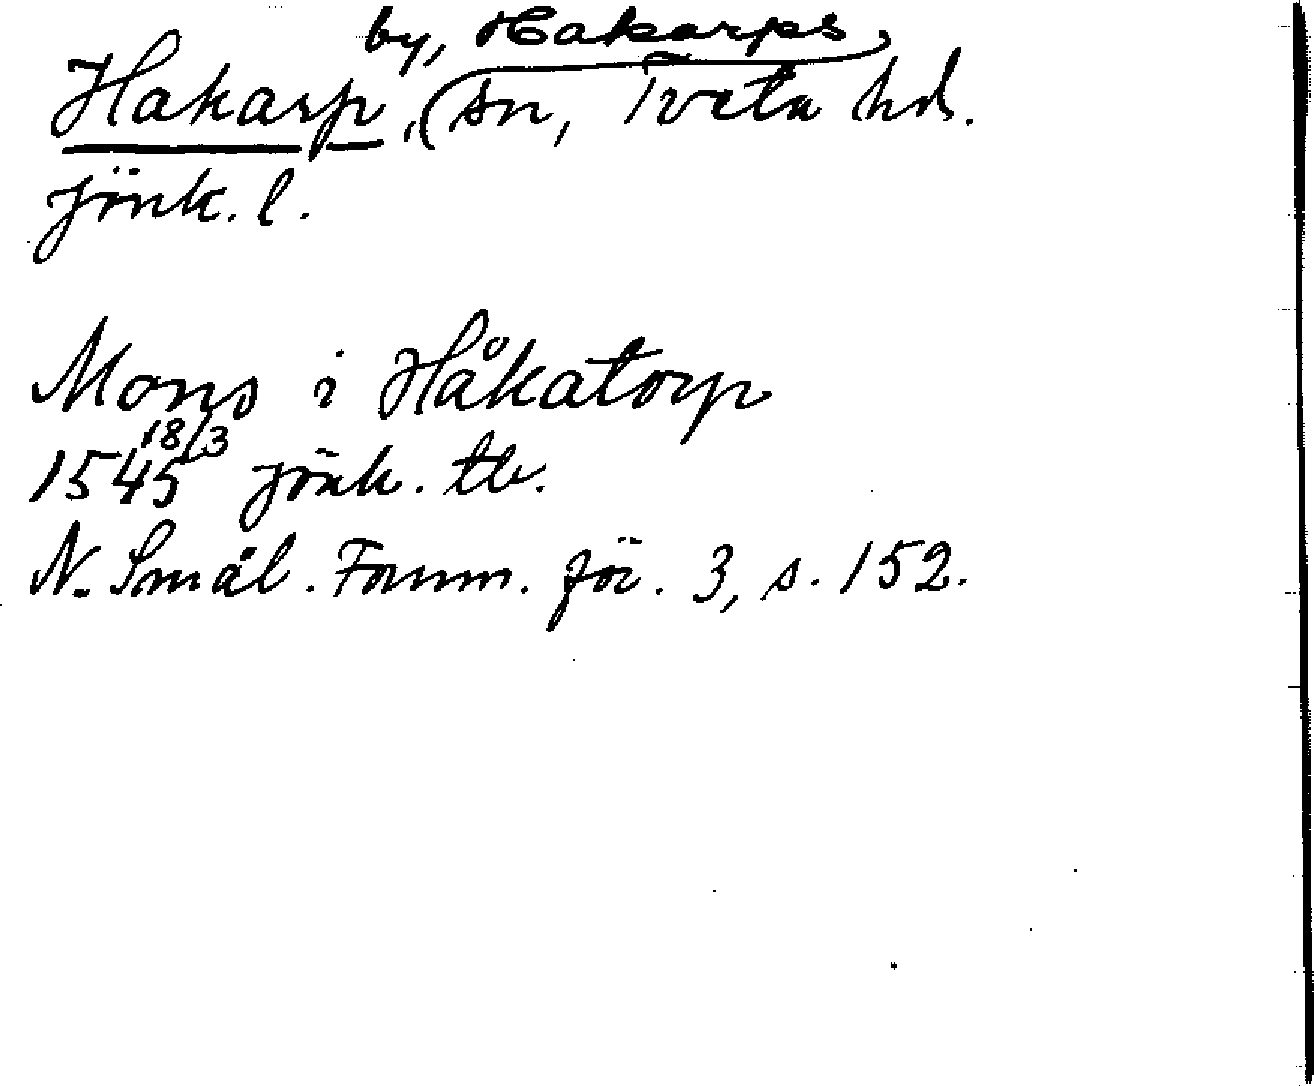 by, Hakarps
Hakarp, sn, Tveta hd.
Jönk. l.
Mons i Håkatorp
18/3
1545 Jönk. tb.
N. Smål. Fornm. för. 3, s. 152.